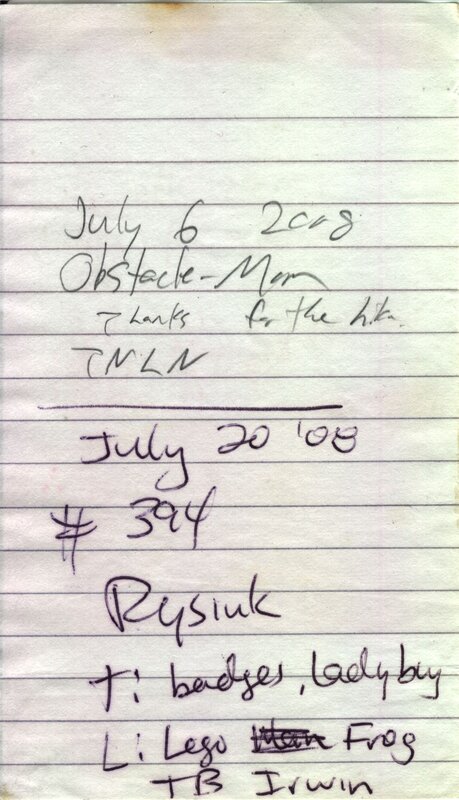 July 6 2008
Obstacle-Mom
Thanks for the hike.
TNLN
July 20 '08
# 394
Rysiuk
T: badges, ladybug
L: Lego Frog
TB Irwin